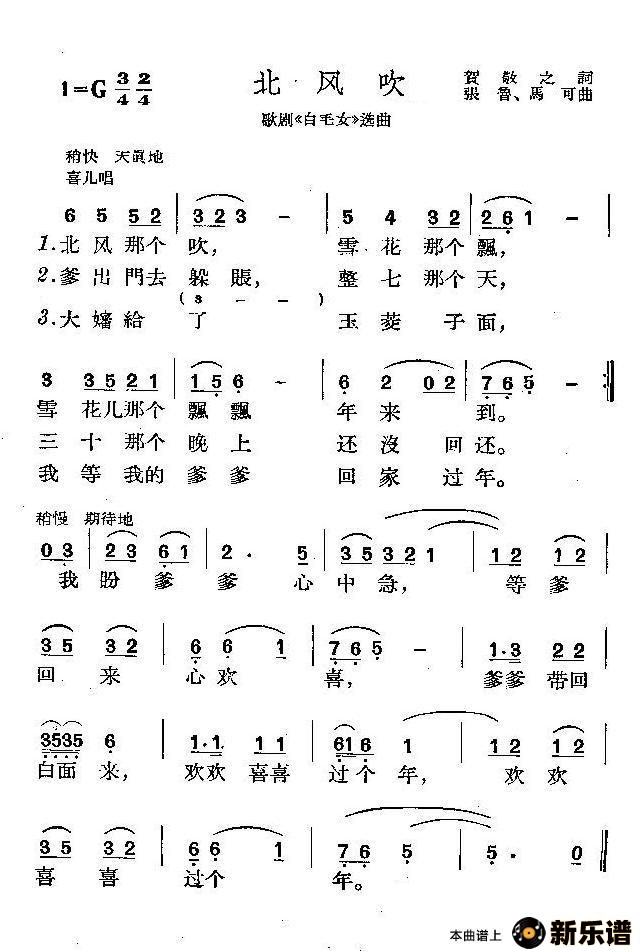 北风吹
1=G 3/4 2/4
賀敬之詞
張魯、馬可曲
歌剧《白毛女》选曲
稍快 天眞地
喜儿唱
6 5 5 2 | 3 2 3 - | 5 4 3 2 | 2 6 1 -
1.北风那个吹, 雪花那个飄,
2.爹出門去躲賬, 整七那个天,
( 3 - - )
3.大嬸給了 玉茭子面,
3 3 5 2 1 | 1 5 6 - | 6 2 0 2 | 7 6 5 - :||
雪花儿那个飄飄 年来到。
三十那个晚上 还沒回还。
我等我的爹爹 回家过年。
稍慢 期待地
0 3 | 2 3 6 1 | 2 . 5 | 3 5 3 2 1 | 1 2 1 2
我盼爹爹心中急, 等爹
3 5 3 2 | 6 6 1 | 7 6 5 - | 1·3 2 2
回来心欢喜, 爹爹带回
3 5 3 5 6 | 1·1 1 1 | 6 1 6 1 | 1 2 1 2
白面来, 欢欢喜喜过个年, 欢欢
3 5 3 2 | 6 6 1 | 7 6 5 | 5 . 0 ||
喜喜过个年。
本曲谱上 新乐谱